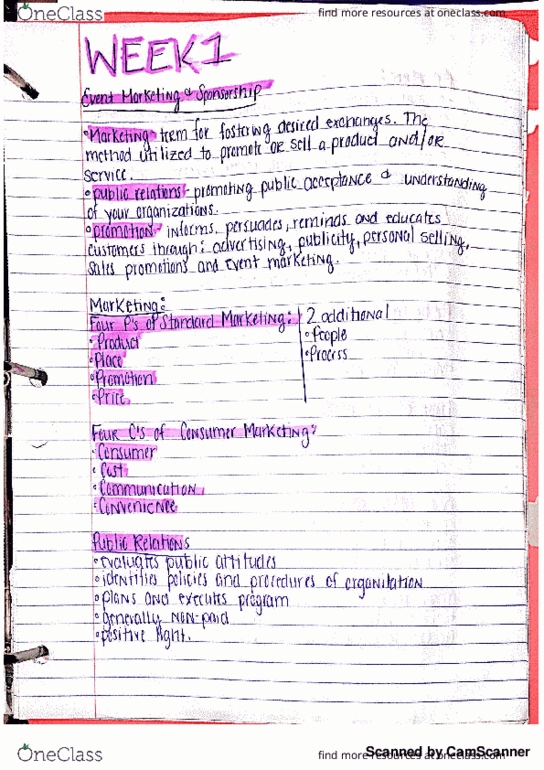 OneClass
find more resources at oneclass.com
WEEK 1
Event Marketing & Sponsorship
•Marketing- trem for fostering desired exchanges. The
method utilized to promote or sell a product and/or
service.
•public relations- promoting public acceptance & understanding
of your organizations.
•promotion- informs, persuades, reminds and educates
customers through: advertising, publicity, personal selling,
sales promotions and event marketing.
Marketing:
Four P's of Standard Marketing: 2 additional
•Product •People
•Place •Process
•Promotion
•Price
Four C's of Consumer Marketing:
•Consumer
•Cost
•Communication
•Convenicnee
Public Relations
•evaluates public attitudes
•identities policies and procedures of organization
•plans and executes program
•generally non-paid
•positive light.
OneClass
find more resources at oneclass.com
Scanned by CamScanner